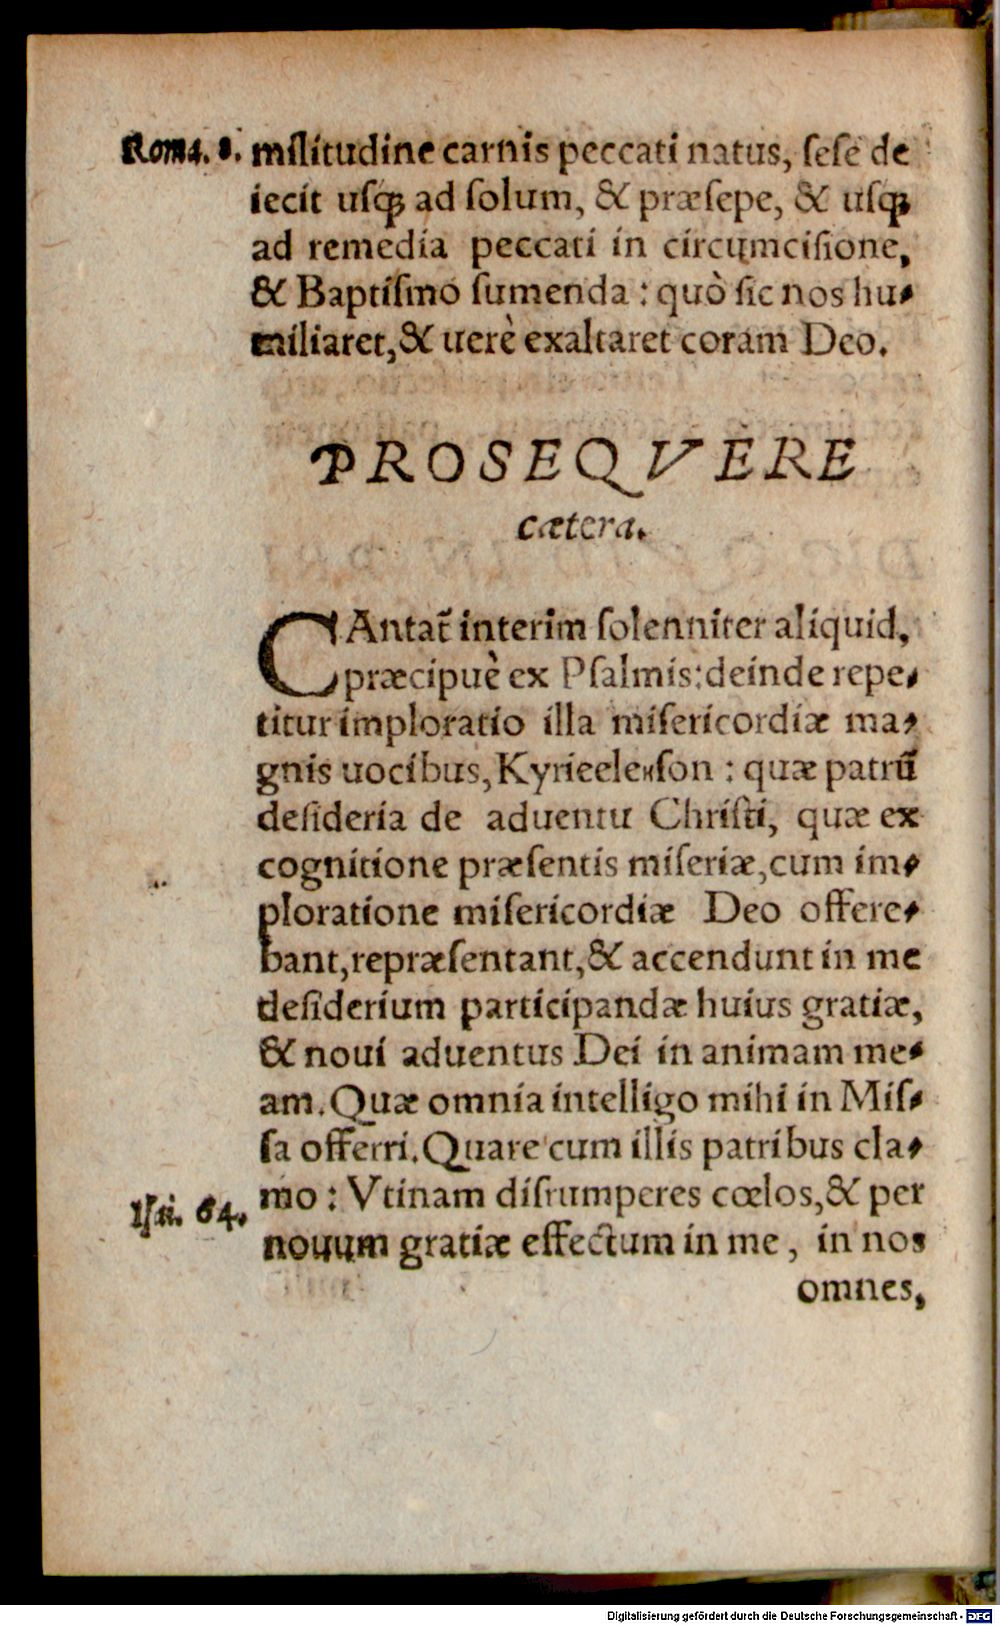 Roma. 8. militudine carnis peccati natus, sese de
iecit usq́ꝫ ad solum, & præsepe, & usq́ꝫ
ad remedia peccati in circumcisione,
& Baptismo sumenda : quò sic nos hu-
miliaret, & uerè exaltaret coram Deo.
PROSEQVERE
cætera.
CAntat̃ interim solenniter aliquid,
præcipuè ex Psalmis: deinde repe-
titur imploratio illa misericordiæ ma-
gnis uocibus, Kyrieeleison : quæ patrũ
desideria de aduentu Christi, quæ ex
cognitione præsentis miseriæ, cum im-
ploratione misericordiæ Deo offere-
bant, repræsentant, & accendunt in me
desiderium participandæ huius gratiæ,
& noui aduentus Dei in animam me-
am. Quæ omnia intelligo mihi in Mis-
sa offerri. Quare cum illis patribus cla-
Isa. 64. mo : Vtinam disrumperes cœlos, & per
nouum gratiæ effectum in me, in nos
omnes,
Digitalisierung gefördert durch die Deutsche Forschungsgemeinschaft - DFG